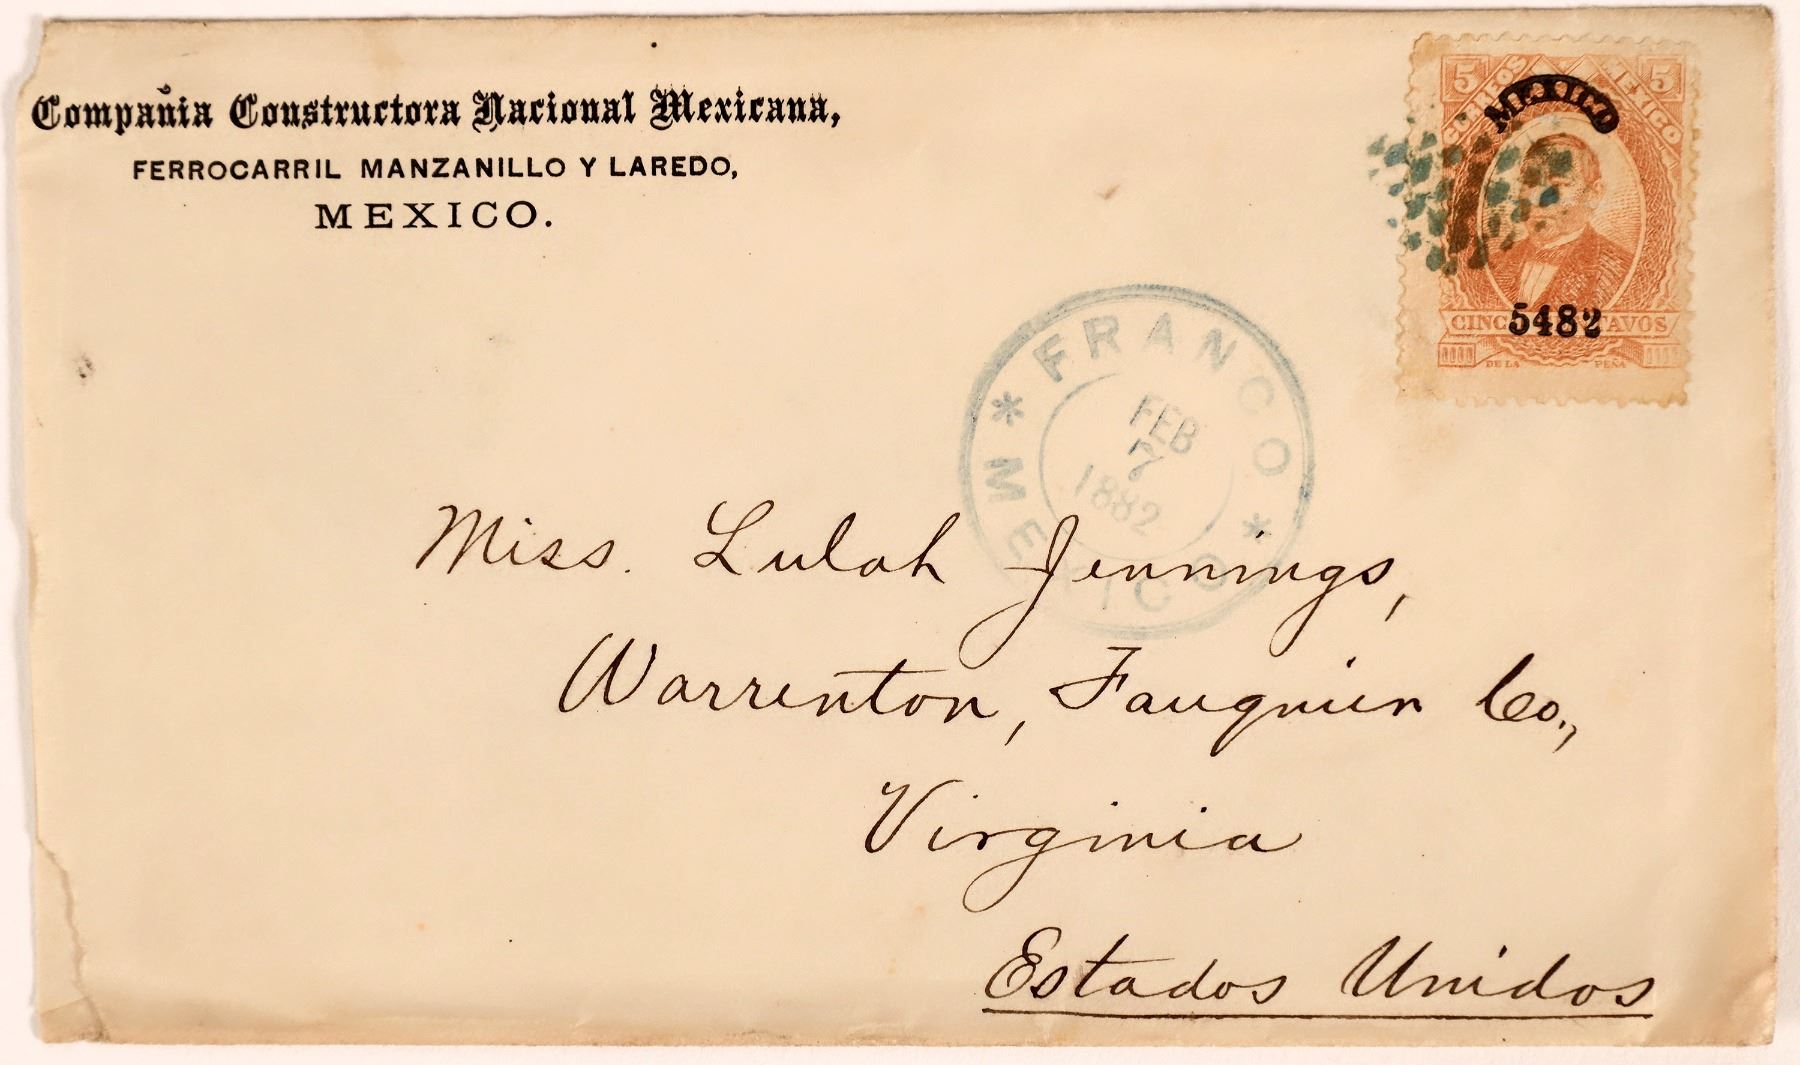 Compañia Constructora Nacional Mexicana,
FERROCARRIL MANZANILLO Y LAREDO,
MEXICO.
5 CORREOS MEXICO 5
MEXICO
5482
CINCO CENTAVOS
DE LA PEÑA
FRANCO
FEB
7
1882
MEXICO
Miss. Lulah Jennings,
Warrenton, Fauquier Co.,
Virginia
Estados Unidos